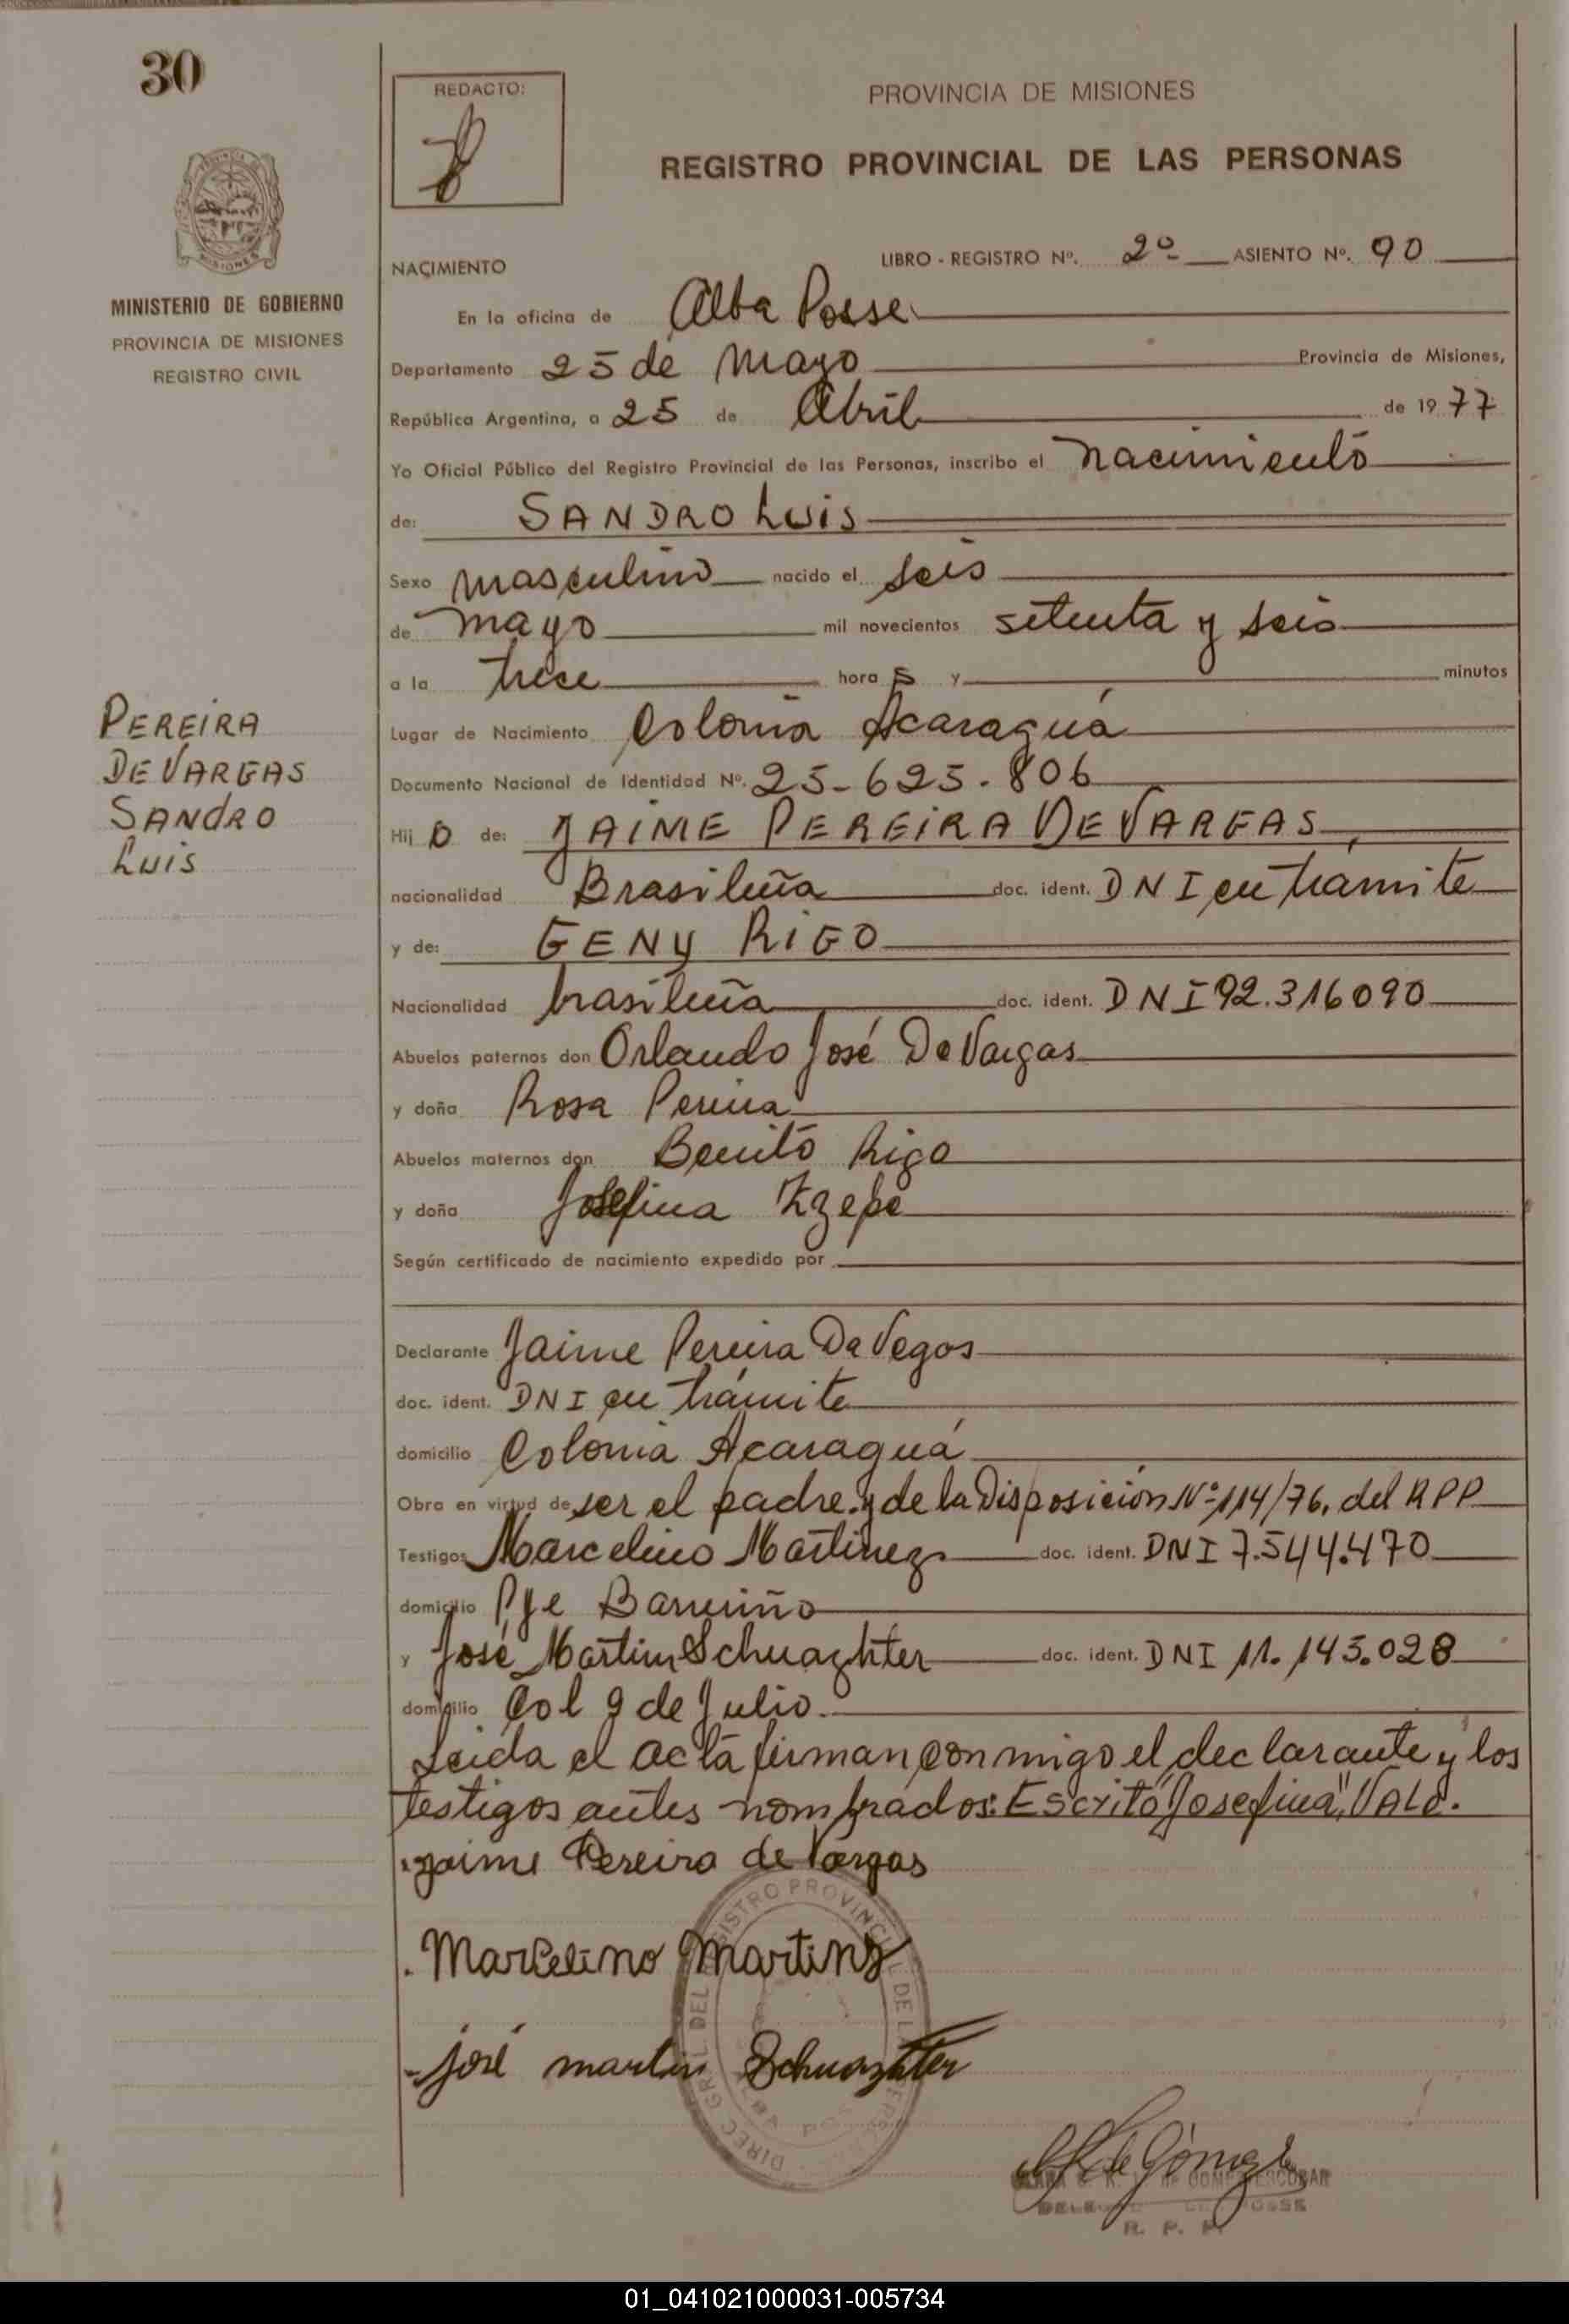 30
REDACTO:
PROVINCIA DE MISIONES
REGISTRO PROVINCIAL DE LAS PERSONAS
MINISTERIO DE GOBIERNO
PROVINCIA DE MISIONES
REGISTRO CIVIL
NACIMIENTO
LIBRO - REGISTRO Nº. 2º ASIENTO Nº. 90
En la oficina de Alba Posse
Departamento 25 de Mayo Provincia de Misiones,
República Argentina, a 25 de Abril de 1977
Yo Oficial Público del Registro Provincial de las Personas, inscribo el nacimiento
de: SANDRO LUIS
Sexo masculino nacido el seis
de mayo mil novecientos setenta y seis
a la trece hora s y minutos
Lugar de Nacimiento Colonia Acaraguá
Documento Nacional de Identidad Nº. 25-625.806
PEREIRA
DE VARGAS
SANDRO
LUIS
Hij o de: JAIME PEREIRA DE VARGAS,
nacionalidad Brasileña doc. ident. DNI en trámite
y de: GENY RIGO
Nacionalidad brasileña doc. ident. DNI 92.316090
Abuelos paternos don Orlando José De Vargas
y doña Rosa Pereira
Abuelos maternos don Benito Rigo
y doña Josefina
Según certificado de nacimiento expedido por
Declarante Jaime Pereira De Vegas
doc. ident. DNI en trámite
domicilio Colonia Acaraguá
Obra en virtud de ser el padre y de la Disposición Nº 114/76, del RPP
Testigos Marcelino Martinez doc. ident. DNI 7.544.470
domicilio Pje Barreiño
y José Martin Schuazhter doc. ident. DNI 11.143.028
domicilio Col 9 de Julio.
Leida el acta firman conmigo el declarante y los
testigos antes nombrados: Escrito "Josefina", VALE.
jaime Pereira de Vargas
Marcelino Martinz
josé martin Schuazhter
DIREC GRAL DEL REGISTRO PROVINCIAL DE LAS PERSONAS
de Gómez
GOMEZ ESCOBAR
R. P. P.
01_041021000031-005734